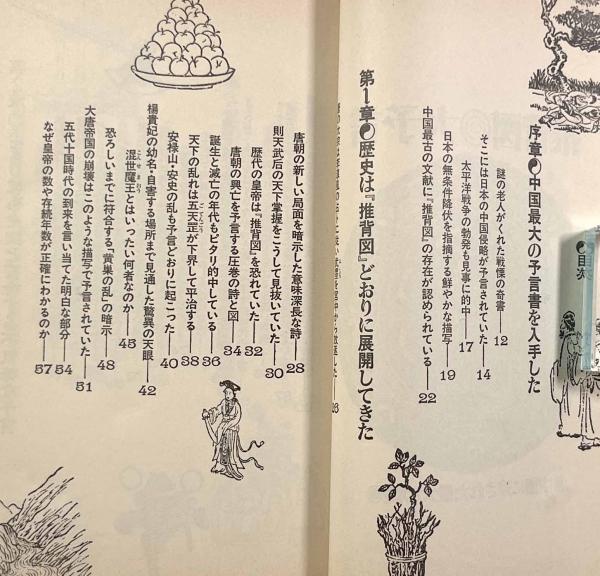 目次
序章 中国最大の予言書を入手した
謎の老人がくれた戦慄の奇書――12
そこには日本の中国侵略が予言されていた――14
太平洋戦争の勃発も見事に的中――17
日本の無条件降伏を指摘する鮮やかな描写――19
中国最古の文献に『推背図』の存在が認められている――22
第1章 歴史は『推背図』どおりに展開してきた
26
唐朝の新しい局面を暗示した意味深長な詩――28
則天武后の天下掌握をこうして見抜いていた――30
歴代の皇帝は『推背図』を恐れていた――32
唐朝の興亡を予言する圧巻の詩と図――34
誕生と滅亡の年代もピタリ的中している――36
天下の乱れは五天罡が下界して平治する――38
ごてんこう
安禄山・安史の乱も予言どおりに起こった――40
楊貴妃の幼名・自害する場所まで見通した驚異の天眼――42
混世魔王とはいったい何者なのか――45
恐ろしいまでに符合する「黄巣の乱」の暗示――48
大唐帝国の崩壊はこのような描写で予言されていた――51
五代十国時代の到来を言い当てた明白な部分――54
なぜ皇帝の数や存続年数が正確にわかるのか――57